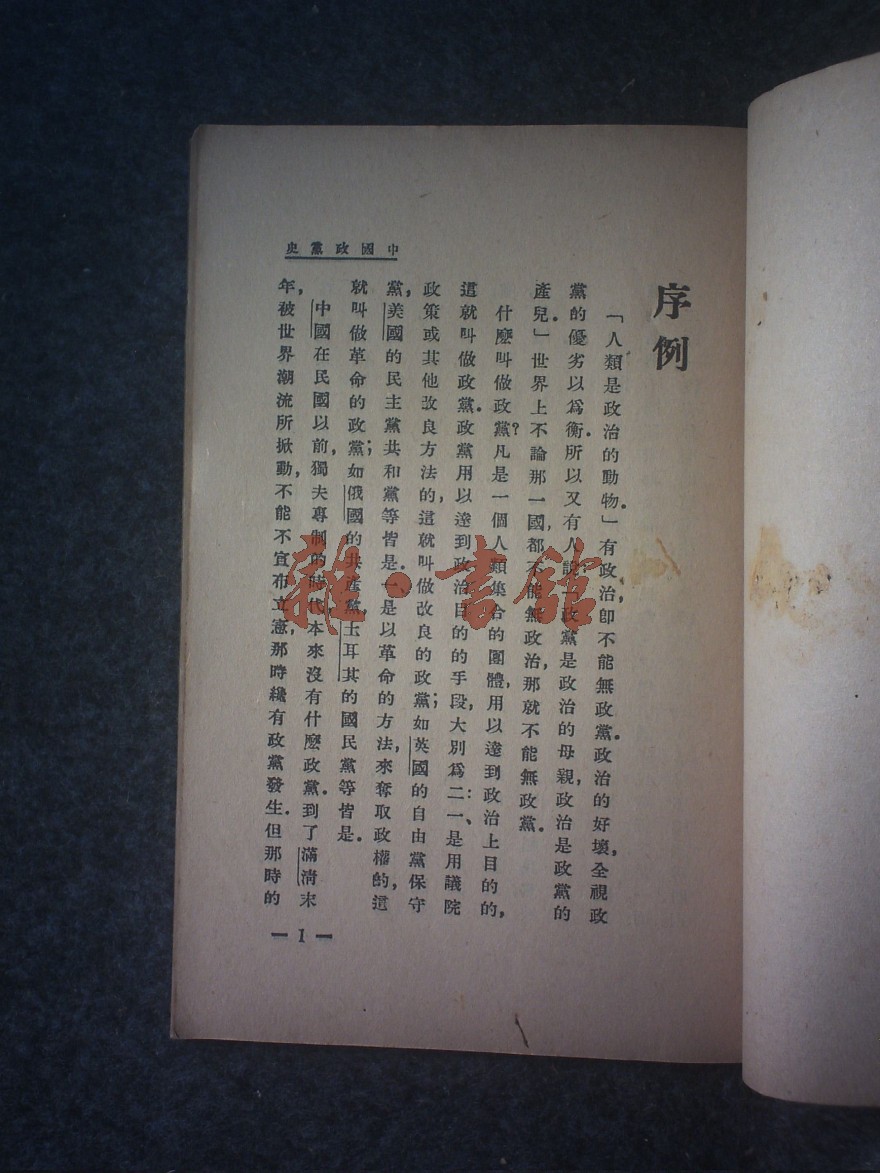 序例
「人類是政治的動物.」有政治,卽不能無政黨.政治的好壞,全視政
黨的優劣以爲衡.所以又有人說:「政黨是政治的母親,政治是政黨的
產兒.」世界上不論那一國,都不能無政治,那就不能無政黨.
什麽叫做政黨?凡是一個人類集合的團體,用以達到政治上目的的,
這就叫做政黨.政黨用以達到政治目的的手段,大別爲二:一、是用議院
政策或其他改良方法的,這就叫做改良的政黨;如英國的自由黨保守
黨,美國的民主黨共和黨等皆是.一、是以革命的方法,來奪取政權的,這
就叫做革命的政黨;如俄國的共產黨,土耳其的國民黨等皆是.
中國在民國以前,獨夫專制的時代,本來沒有什麽政黨.到了滿淸末
年,被世界潮流所掀動,不能不宣布立憲,那時纔有政黨發生.但那時的
中國政黨史
— 1 —
雜·書館